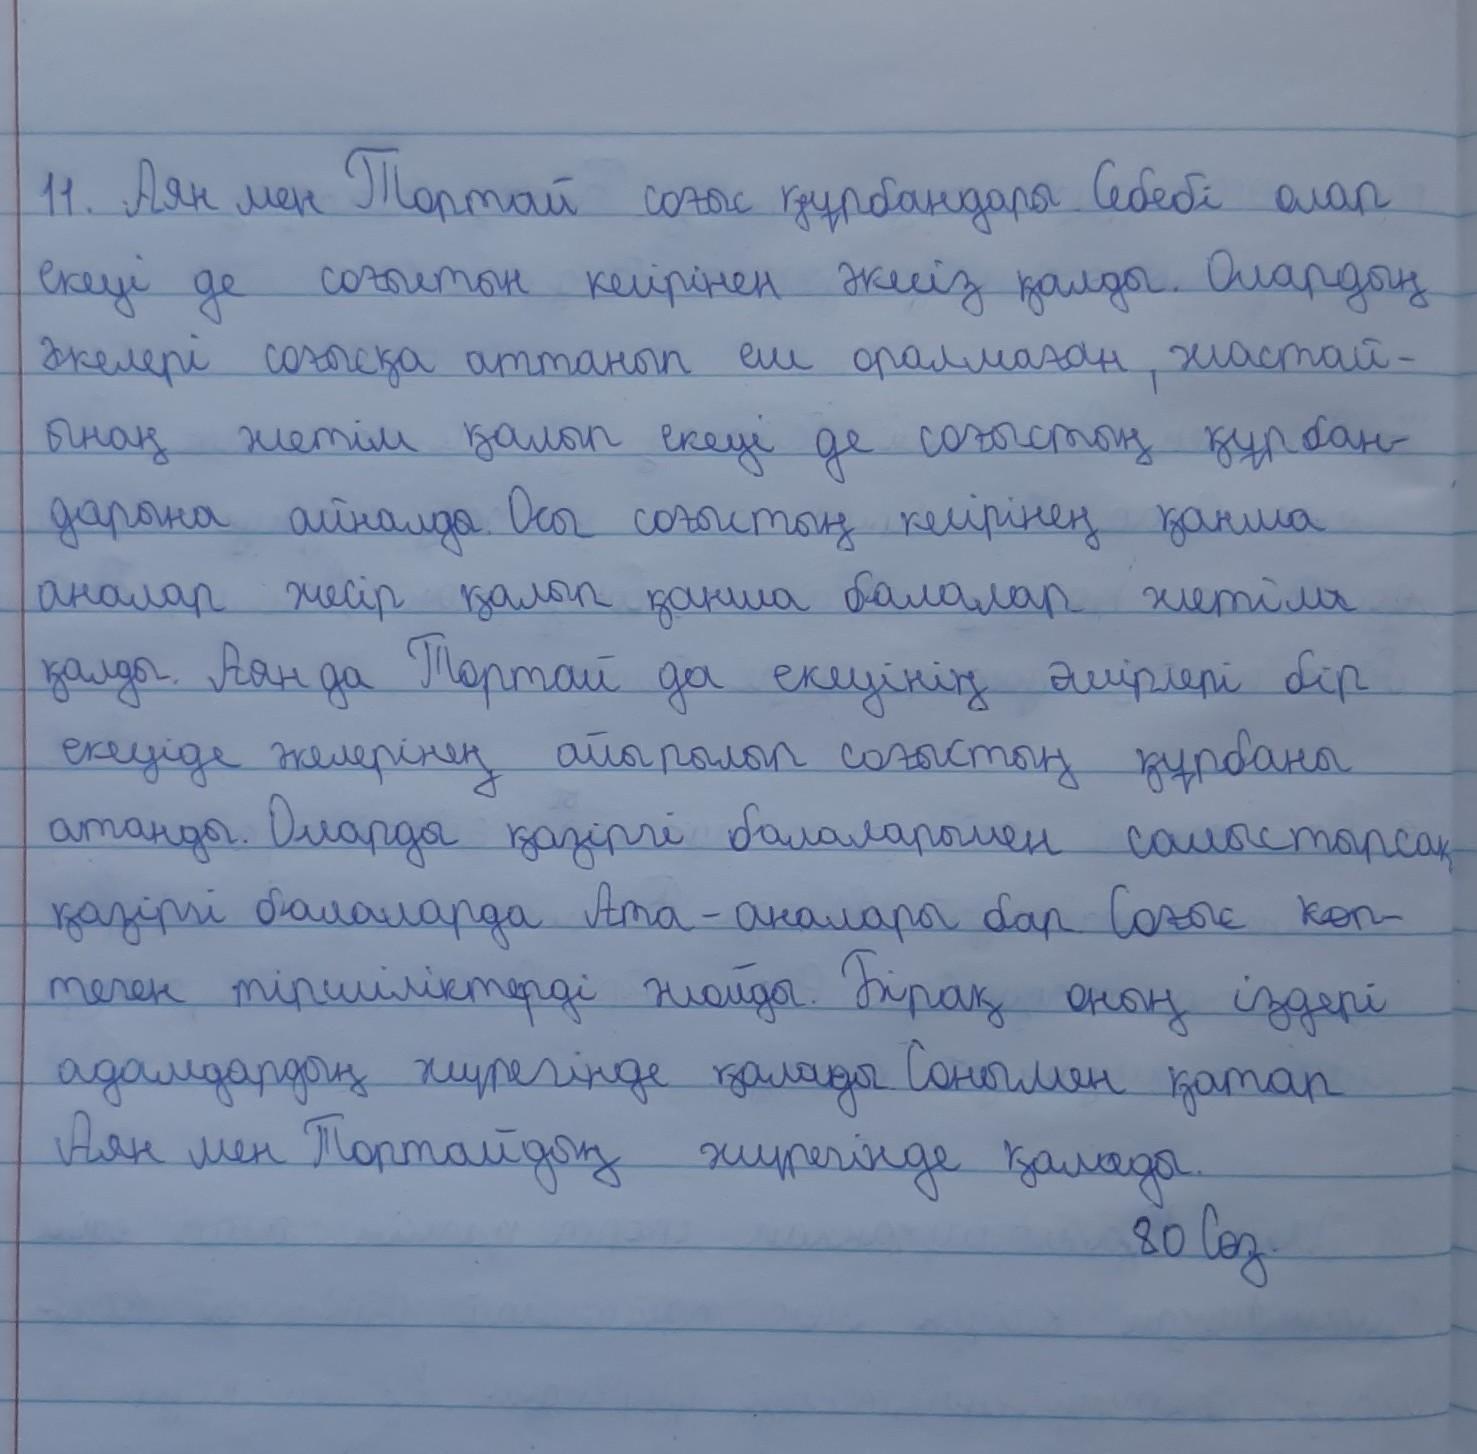 11. Аян мен Тортай соғыс құрбандары Себебі олар
екеуі де соғыстың кеірінен әкеіз қалды. Олардың
әкелері соғысқа аттанып еш оралмаған, жастай-
ынаң жетім қалып екеуі де соғыстың құрбан-
дарына айналда. Осы соғыстың кеірінең қанша
аналар жесір қалып қанша балалар жетім
қалды. Аян да Тортай да екеуінің өмірлері бір
екеуіде әкелерінең айырылып соғыстың құрбаны
атанды. Оларды қазіргі балаларымен салыстырсақ
қазіргі балаларда Ата-аналары бар Соғыс көп-
теген тіршіліктерді жойды. Бірақ оның іздері
адамдардың жүрегінде қалады Сонымен қатар
Аян мен Тортайдың жүрегінде қалады.
80 Сөз.